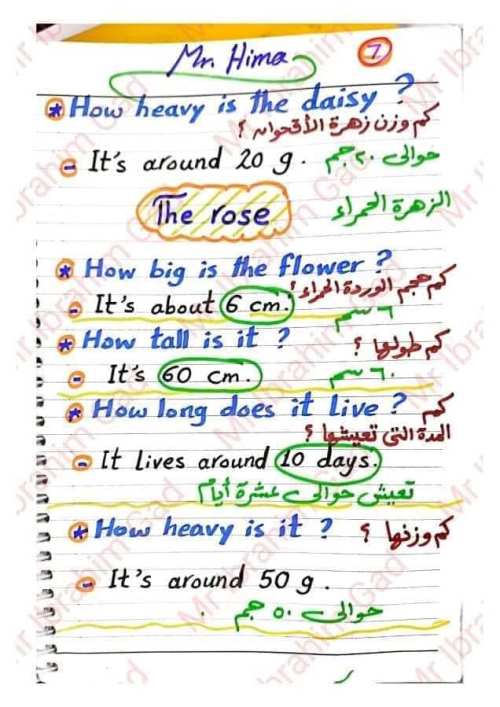 Mr. Hima
7
* How heavy is the daisy ?
كم وزن زهرة الأقحوان ؟
- It's around 20 g. حوالى ٢٠ جم
The rose الزهرة الحمراء
* How big is the flower ?
كم حجم الوردة الحمراء ؟
- It's about 6 cm. ٦ سم
* How tall is it ? كم طولها ؟
- It's 60 cm. ٦٠ سم
* How long does it live ? كم
المدة التى تعيشها ؟
- It lives around 10 days.
تعيش حوالى عشرة أيام
* How heavy is it ? كم وزنها ؟
- It's around 50 g.
حوالى ٥٠ جم
Mr Ibrahim Gad